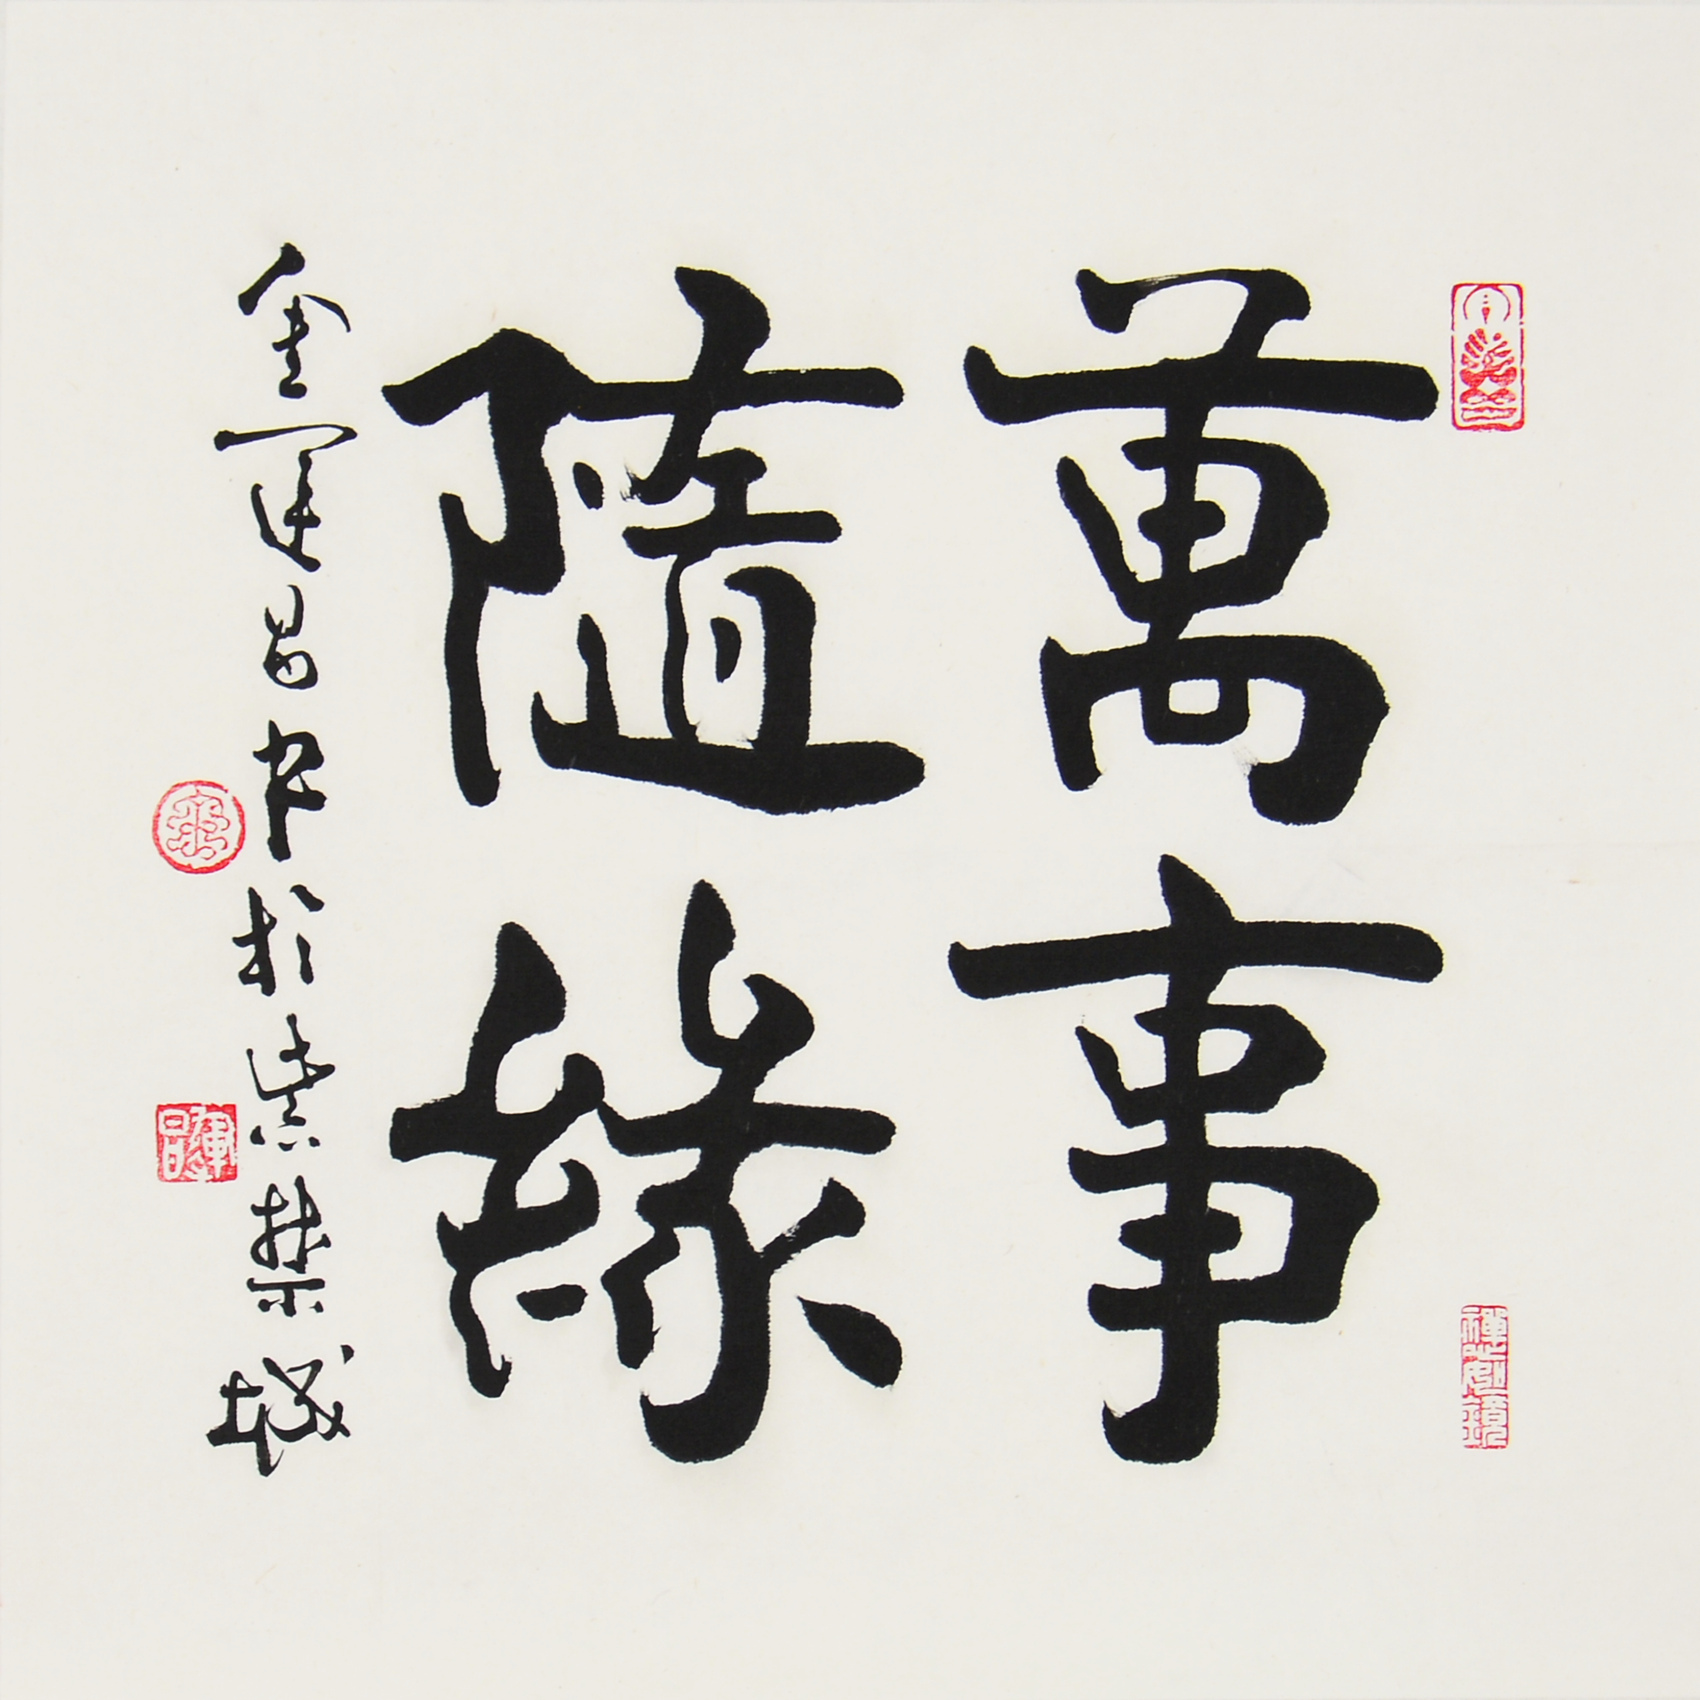 萬事
隨緣
金運昌書於紫禁城